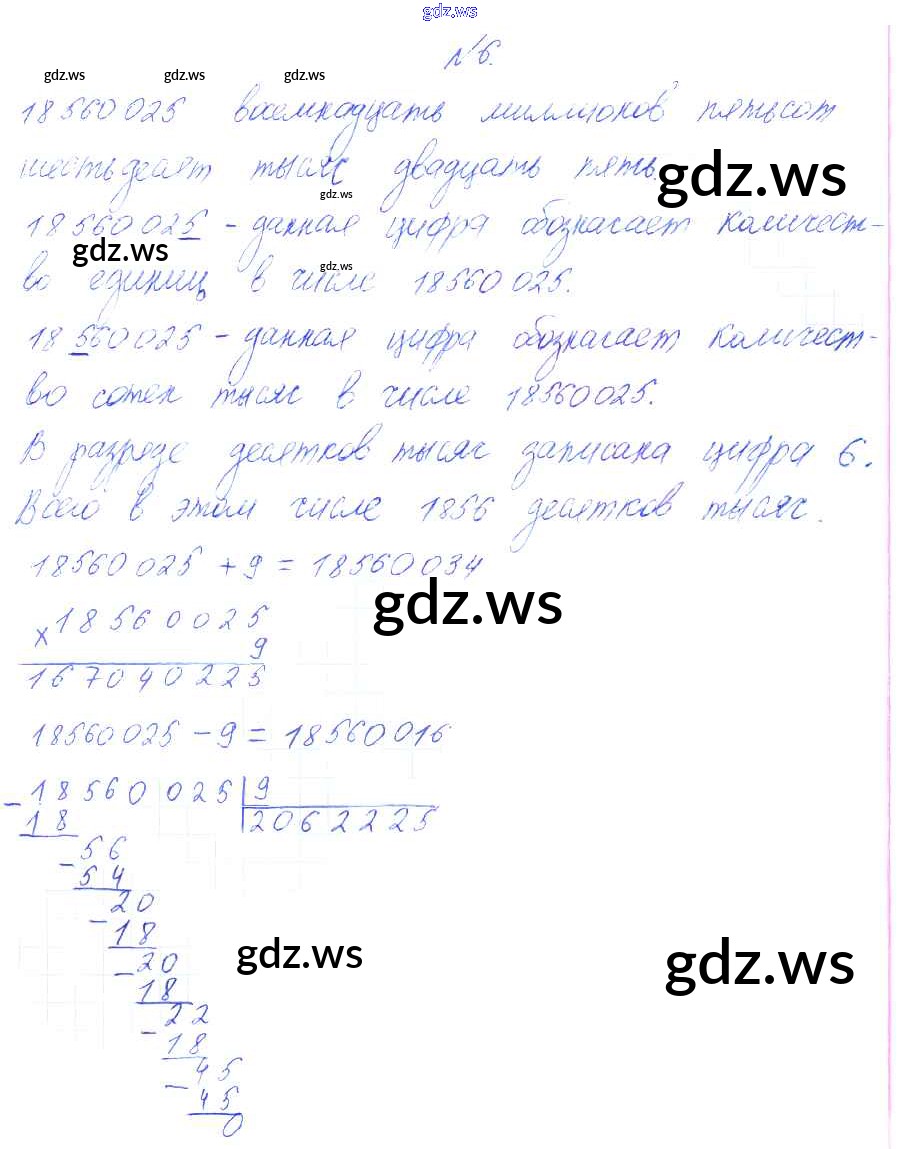 gdz.ws
№6.
gdz.ws gdz.ws gdz.ws
18560025 восемнадцать миллионов пятьсот
шестьдесят тысяч двадцать пять.
gdz.ws
gdz.ws
18560025 - данная цифра обозначает количест-
gdz.ws
gdz.ws
во единиц в числе 18560025.
18560025 - данная цифра обозначает количест-
во сотен тысяч в числе 18560025.
В разряде десятков тысяч записана цифра 6.
Всего в этом числе 1856 десятков тысяч.
18560025 + 9 = 18560034
gdz.ws
× 18560025
9
167040225
18560025 - 9 = 18560016
- 18560025 | 9
18 | 2062225
56
- 54
20
- 18
gdz.ws gdz.ws
- 20
18
22
- 18
45
- 45
0